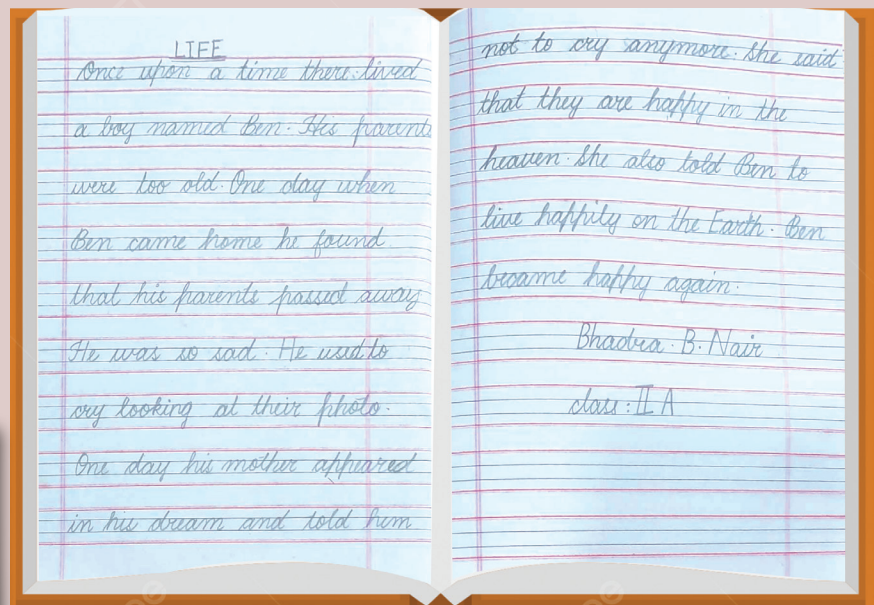 LIFE
Once upon a time there lived
a boy named Ben. His parents
were too old. One day when
Ben came home he found
that his parents passed away
He was so sad. He used to
cry looking at their photo.
One day his mother appeared
in his dream and told him
not to cry anymore. She said
that they are happy in the
heaven. She also told Ben to
live happily on the Earth. Ben
became happy again.
Bhadra. B. Nair
class: II A